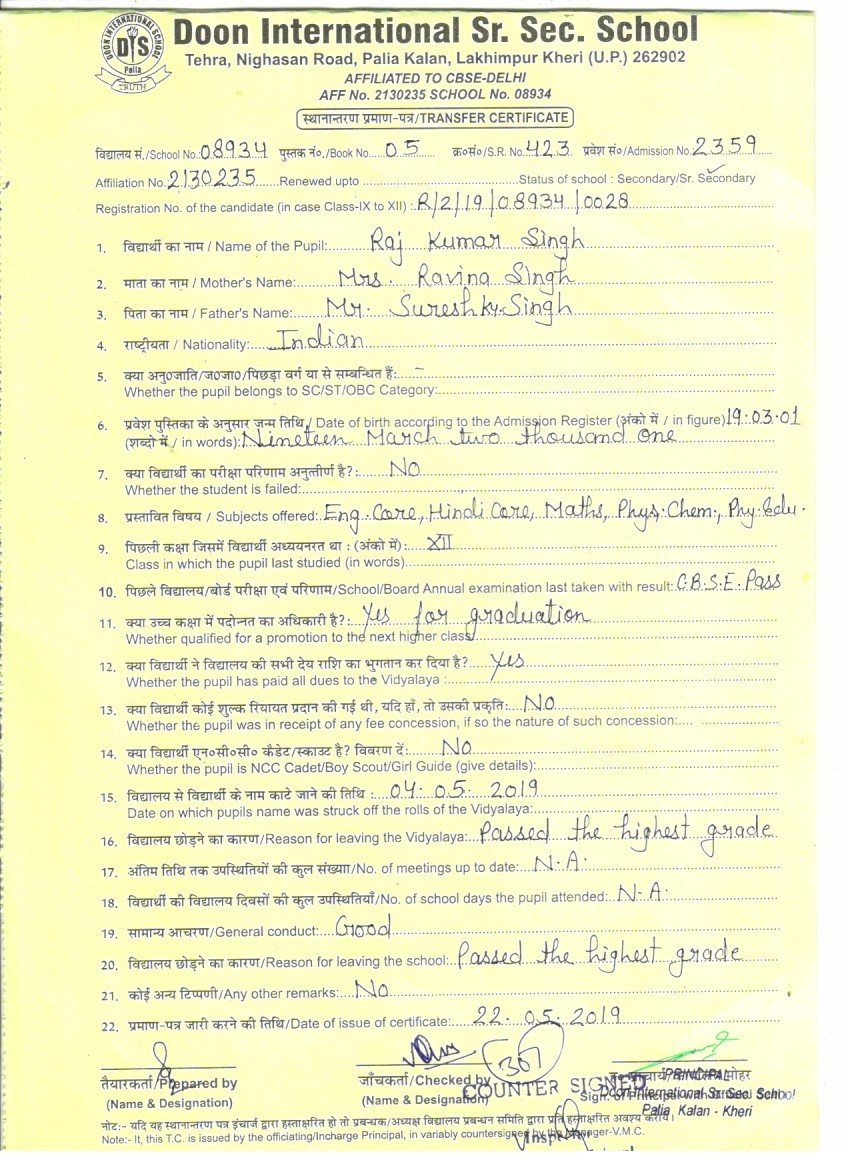 DOON INTERNATIONAL SCHOOL
DIS
Palia
TRUTH
Doon International Sr. Sec. School
Tehra, Nighasan Road, Palia Kalan, Lakhimpur Kheri (U.P.) 262902
AFFILIATED TO CBSE-DELHI
AFF No. 2130235 SCHOOL No. 08934
स्थानान्तरण प्रमाण-पत्र/TRANSFER CERTIFICATE
विद्यालय सं./School No.: 08934 पुस्तक नं०./Book No. 05 क्र०सं०/S.R. No. 423 प्रवेश सं०/Admission No. 2359
Affiliation No. 2130235 Renewed upto Status of school : Secondary/Sr. Secondary
Registration No. of the candidate (in case Class-IX to XII) : R/2/19/08934/0028
1. विद्यार्थी का नाम / Name of the Pupil: Raj Kumar Singh
2. माता का नाम / Mother's Name: Mrs. Ravina Singh
3. पिता का नाम / Father's Name: Mr. Suresh Kr. Singh
4. राष्ट्रीयता / Nationality: Indian
5. क्या अनु०जाति/ज०जा०/पिछड़ा वर्ग या से सम्बन्धित हैं: -
Whether the pupil belongs to SC/ST/OBC Category:
6. प्रवेश पुस्तिका के अनुसार जन्म तिथि / Date of birth according to the Admission Register (अंको में / in figure) 19.03.01
(शब्दो में / in words): Nineteen March two thousand one
7. क्या विद्यार्थी का परीक्षा परिणाम अनुत्तीर्ण है?: No
Whether the student is failed:
8. प्रस्तावित विषय / Subjects offered: Eng. Core, Hindi Core, Maths, Phys. Chem., Phy. Edu.
9. पिछली कक्षा जिसमें विद्यार्थी अध्ययनरत था : (अंको में): XII
Class in which the pupil last studied (in words)
10. पिछले विद्यालय/बोर्ड परीक्षा एवं परिणाम/School/Board Annual examination last taken with result: C.B.S.E. Pass
11. क्या उच्च कक्षा में पदोन्नत का अधिकारी है?: Yes for graduation
Whether qualified for a promotion to the next higher class
12. क्या विद्यार्थी ने विद्यालय की सभी देय राशि का भुगतान कर दिया है? Yes
Whether the pupil has paid all dues to the Vidyalaya :
13. क्या विद्यार्थी कोई शुल्क रियायत प्रदान की गई थी, यदि हाँ, तो उसकी प्रकृति: No
Whether the pupil was in receipt of any fee concession, if so the nature of such concession:
14. क्या विद्यार्थी एन०सी०सी० कैडेट/स्काउट है? विवरण दें: No
Whether the pupil is NCC Cadet/Boy Scout/Girl Guide (give details):
15. विद्यालय से विद्यार्थी के नाम काटे जाने की तिथि : 04.05.2019
Date on which pupils name was struck off the rolls of the Vidyalaya:
16. विद्यालय छोड़ने का कारण/Reason for leaving the Vidyalaya: Passed the highest grade
17. अंतिम तिथि तक उपस्थितियों की कुल संख्या/No. of meetings up to date: N.A.
18. विद्यार्थी की विद्यालय दिवसों की कुल उपस्थितियाँ/No. of school days the pupil attended: N.A.
19. सामान्य आचरण/General conduct: Good
20. विद्यालय छोड़ने का कारण/Reason for leaving the school: Passed the highest grade
21. कोई अन्य टिप्पणी/Any other remarks: No
22. प्रमाण-पत्र जारी करने की तिथि/Date of issue of certificate: 22.05.2019
तैयारकर्ता/Prepared by जाँचकर्ता/Checked by 367 PRINCIPAL
(Name & Designation) (Name & Designation) COUNTER SIGNED Doon International Sr. Sec. School
Palia Kalan - Kheri
नोट:- यदि यह स्थानान्तरण पत्र इंचार्ज द्वारा हस्ताक्षरित हो तो प्रबन्धक/अध्यक्ष विद्यालय प्रबन्धन समिति द्वारा प्रति हस्ताक्षरित अवश्य कराये।
Note:- It, this T.C. is issued by the officiating/Incharge Principal, in variably countersigned by the Manager-V.M.C.